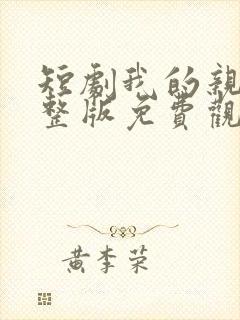 短劇我的親
整版免費觀
黄李荣